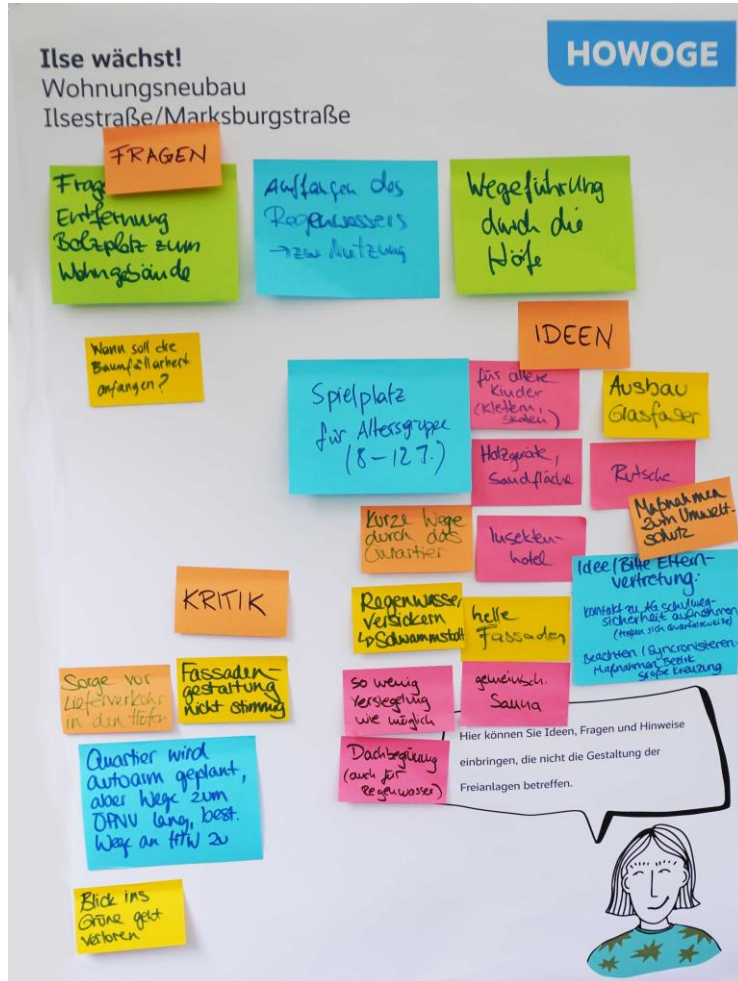 Ilse wächst!
Wohnungsneubau
Ilsestraße/Marksburgstraße
HOWOGE
FRAGEN
Frage
Entfernung
Bolzplatz zum
Wohngebäude
Auffangen des
Regenwassers
→ zur Nutzung
Wegeführung
durch die
Höfe
Wann soll die
Baumfällarbeit
anfangen?
IDEEN
Spielplatz
für Altersgruppe
(8-12 J.)
für ältere
Kinder
(Klettern,
skaten)
Ausbau
Glasfaser
Holzgeräte,
Sandfläche
Rutsche
Maßnahmen
zum Umwelt-
schutz
Kurze Wege
durch das
Quartier
Insekten-
hotel
Idee/Bitte Eltern-
vertretung:
Kontakt zu AG Schulweg-
sicherheit aufnehmen
(treffen sich quartalsweise)
Beachten/Syncronisieren
Maßnahmen Bezirk
große Kreuzung
Regenwasser
versickern
↳ Schwammstadt
helle
Fassaden
so wenig
Versiegelung
wie möglich
gemeinsch.
Sauna
Dachbegrünung
(auch für
Regenwasser)
KRITIK
Sorge vor
Lieferverkehr
in den Höfen
Fassaden-
gestaltung
nicht stimmig
Quartier wird
autoarm geplant,
aber Wege zum
ÖPNV lang, best.
Wege an HTW zu
Blick ins
Grüne geht
verloren
Hier können Sie Ideen, Fragen und Hinweise
einbringen, die nicht die Gestaltung der
Freianlagen betreffen.